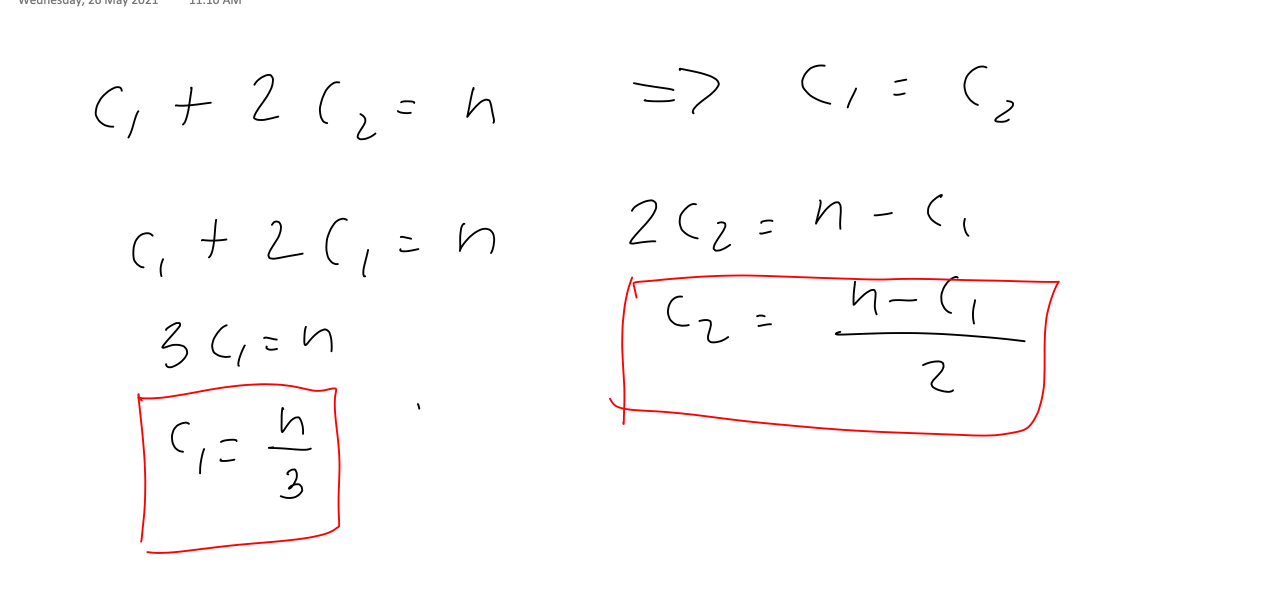 Wednesday, 26 May 2021 11:10 AM
C₁ + 2C₂ = n => C₁ = C₂
C₁ + 2C₁ = n
3C₁ = n
C₁ = n/3
2C₂ = n - C₁
C₂ = (n - C₁)/2